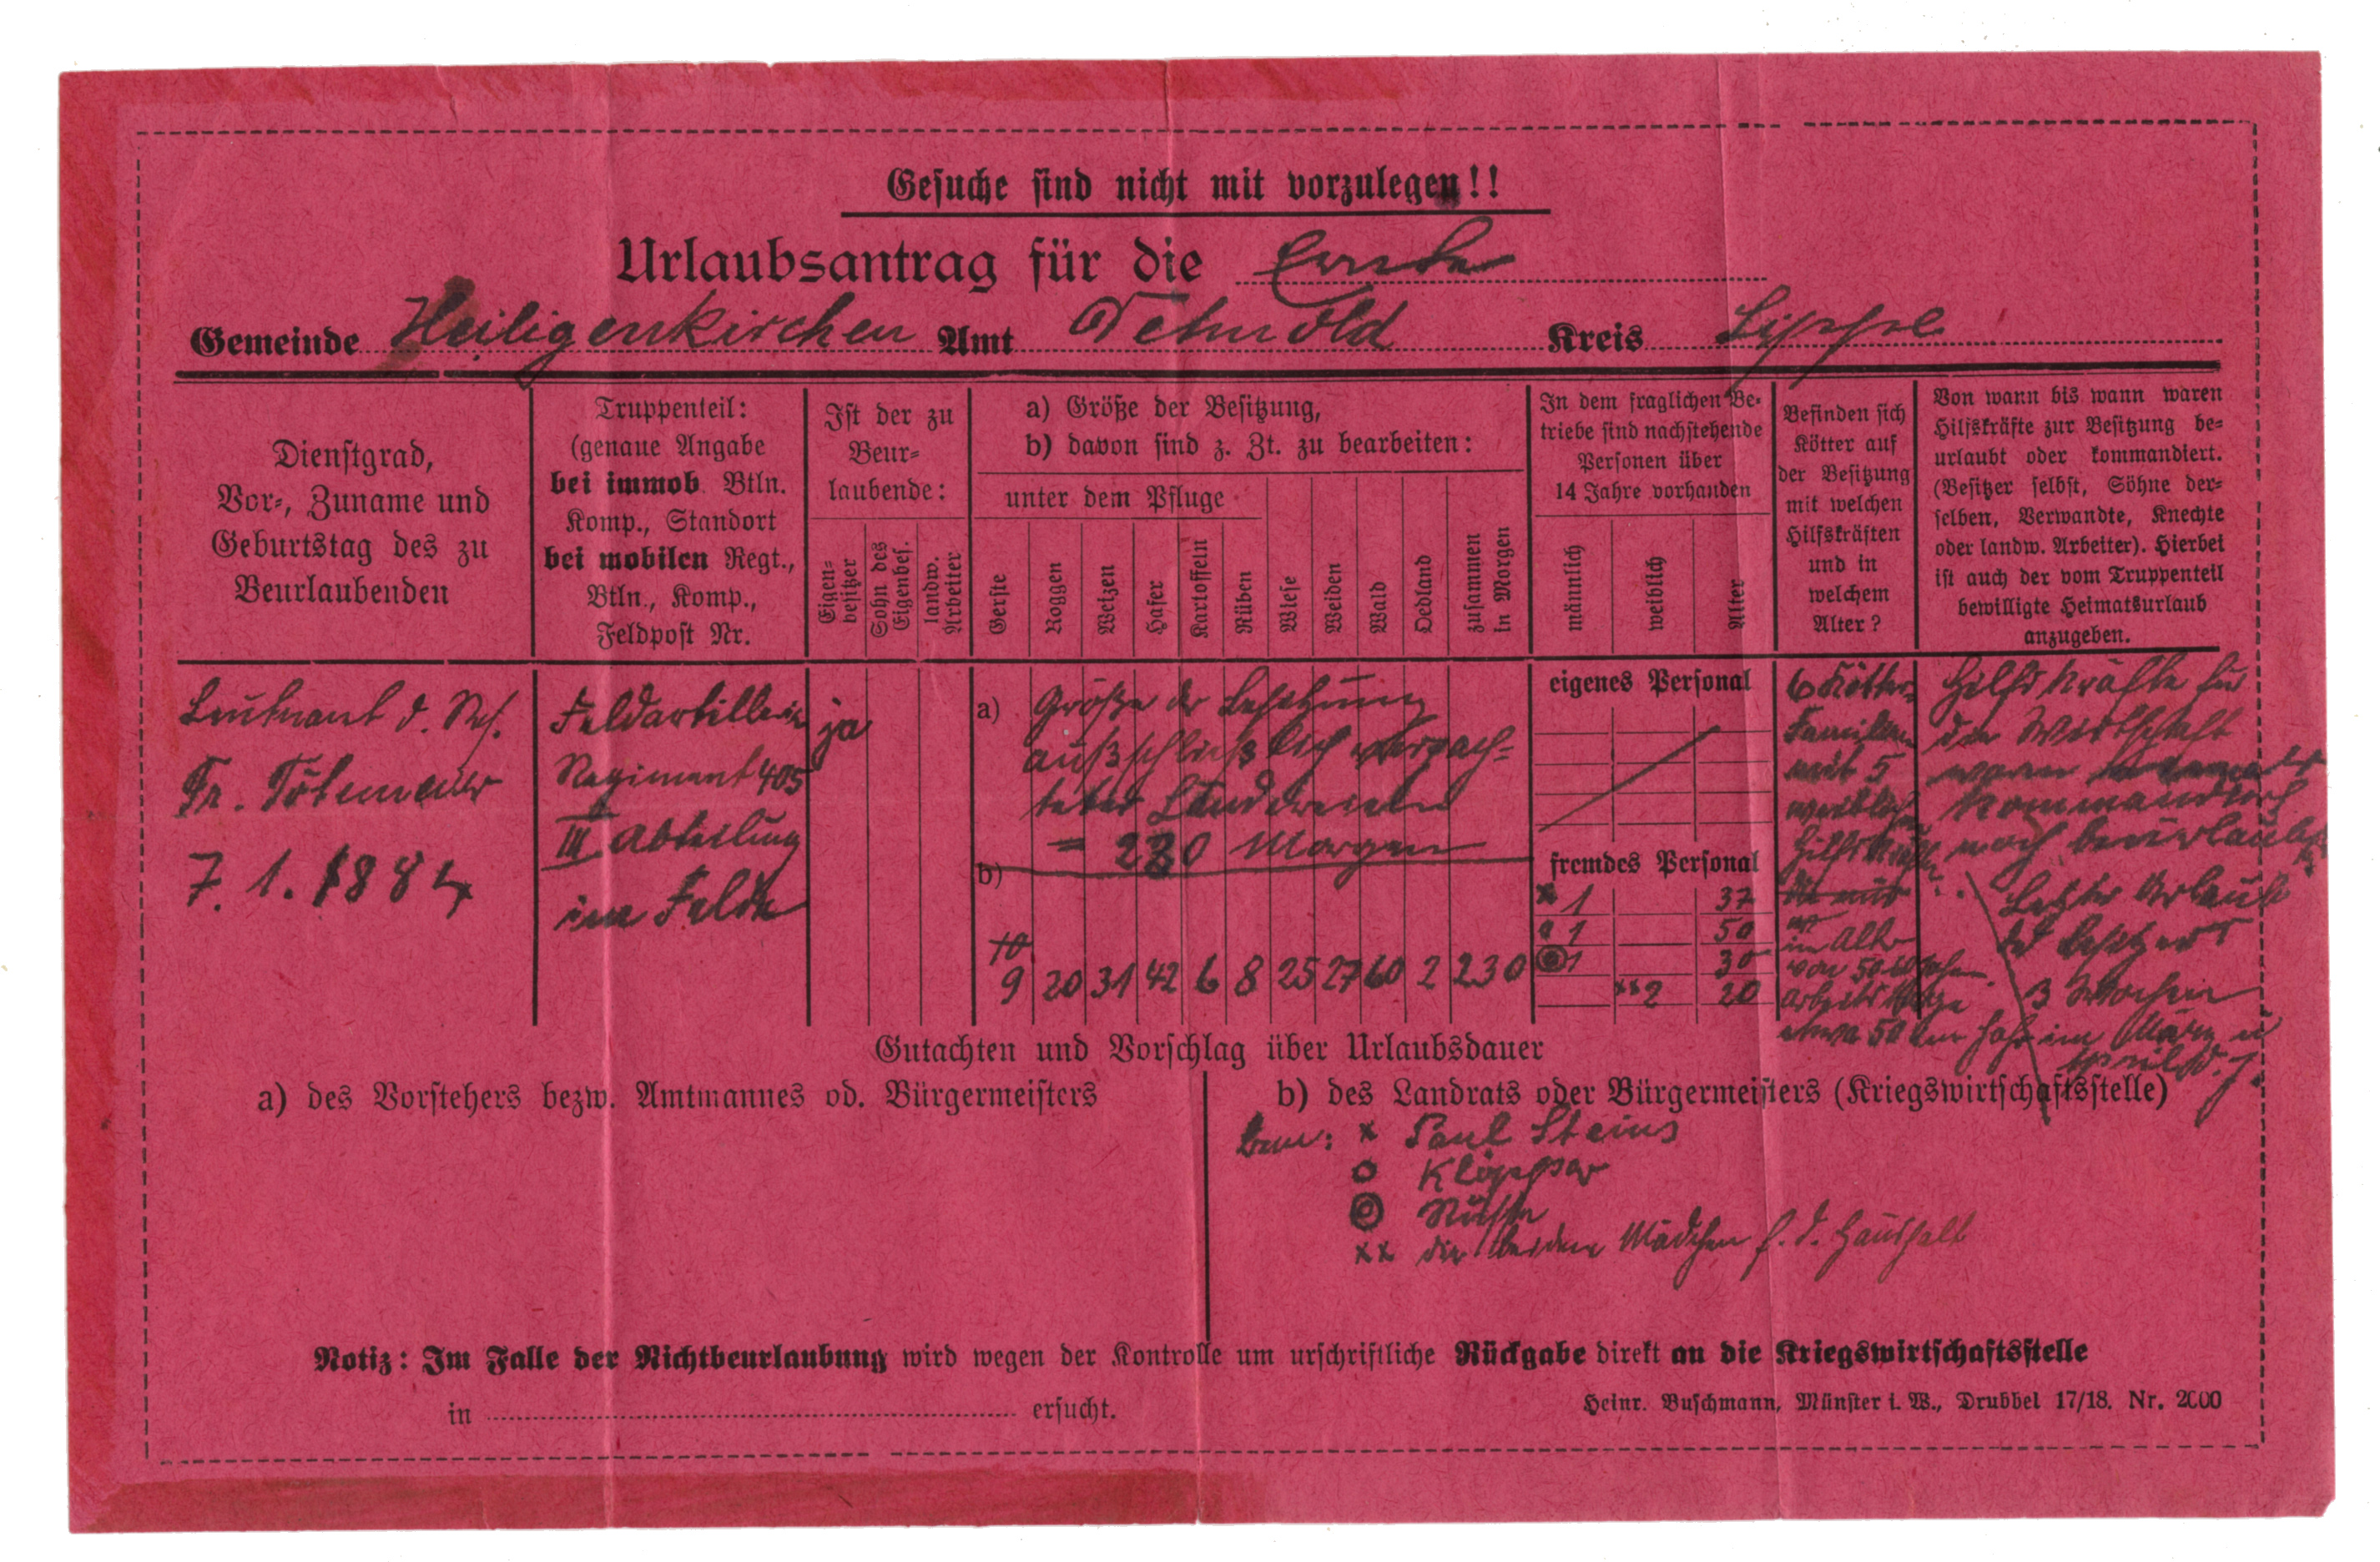 Gesuche sind nicht mit vorzulegen!!
Urlaubsantrag für die Ernte
Gemeinde Heiligenkirchen Amt Detmold Kreis Lippe
Dienstgrad,
Vor-, Zuname und
Geburtstag des zu
Beurlaubenden
Truppenteil:
(genaue Angabe
bei immob. Btln.
Komp., Standort
bei mobilen Regt.,
Btln., Komp.,
Feldpost Nr.
Ist der zu
Beur-
laubende:
Eigen-
besitzer
Sohn des
Eigenbes.
landw.
Arbeiter
a) Größe der Besitzung,
b) davon sind z. Zt. zu bearbeiten:
unter dem Pfluge
Gerste
Roggen
Weizen
Hafer
Kartoffeln
Rüben
Wiese
Weiden
Wald
Oedland
zusammen
in Morgen
In dem fraglichen Be-
triebe sind nachstehende
Personen über
14 Jahre vorhanden
männlich
weiblich
Alter
Befinden sich
Kötter auf
der Besitzung
mit welchen
Hilfskräften
und in
welchem
Alter?
Von wann bis wann waren
Hilfskräfte zur Besitzung be-
urlaubt oder kommandiert.
(Besitzer selbst, Söhne der-
selben, Verwandte, Knechte
oder landw. Arbeiter). Hierbei
ist auch der vom Truppenteil
bewilligte Heimatsurlaub
anzugeben.
Leutnant d. Res.
Fr. Tötemeier
7. 1. 1884
Feldartillerie
Regiment 405
III Abteilung
im Felde
ja
a) Größe der Besitzung
ausschließlich verpach-
teter Ländereien
= 230 Morgen
b)
10
9 20 31 42 6 8 25 27 60 2 230
eigenes Personal
fremdes Personal
x 1 37
o 1 50
◎ 1 30
xx 2 20
6 Kötter
Familien
mit 5
weiblichen
Hilfskräften
im Alter
von 50-60 Jahren
Arbeitstage
etwa 50 im Jahr
Hilfskräfte für
die Wirtschaft
waren
kommandiert
noch beurlaubt
Letzter Urlaub
des Besitzers
3 Wochen
im März u
April d. J.
Gutachten und Vorschlag über Urlaubsdauer
a) des Vorstehers bezw. Amtmannes od. Bürgermeisters
b) des Landrats oder Bürgermeisters (Kriegswirtschaftsstelle)
Bem: x Paul Steins
o Klöpper
◎
xx die beiden Mädchen f. d. Haushalt
Notiz: Im Falle der Nichtbeurlaubung wird wegen der Kontrolle um urschriftliche Rückgabe direkt an die Kriegswirtschaftsstelle
in ersucht.
Heinr. Buschmann, Münster i. W., Drubbel 17/18. Nr. 2000